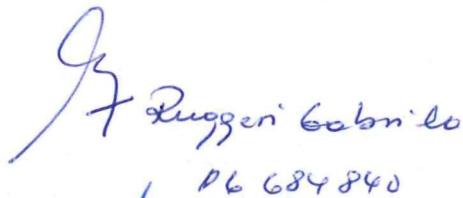 Ruggeri Gabriela
P6 684 840